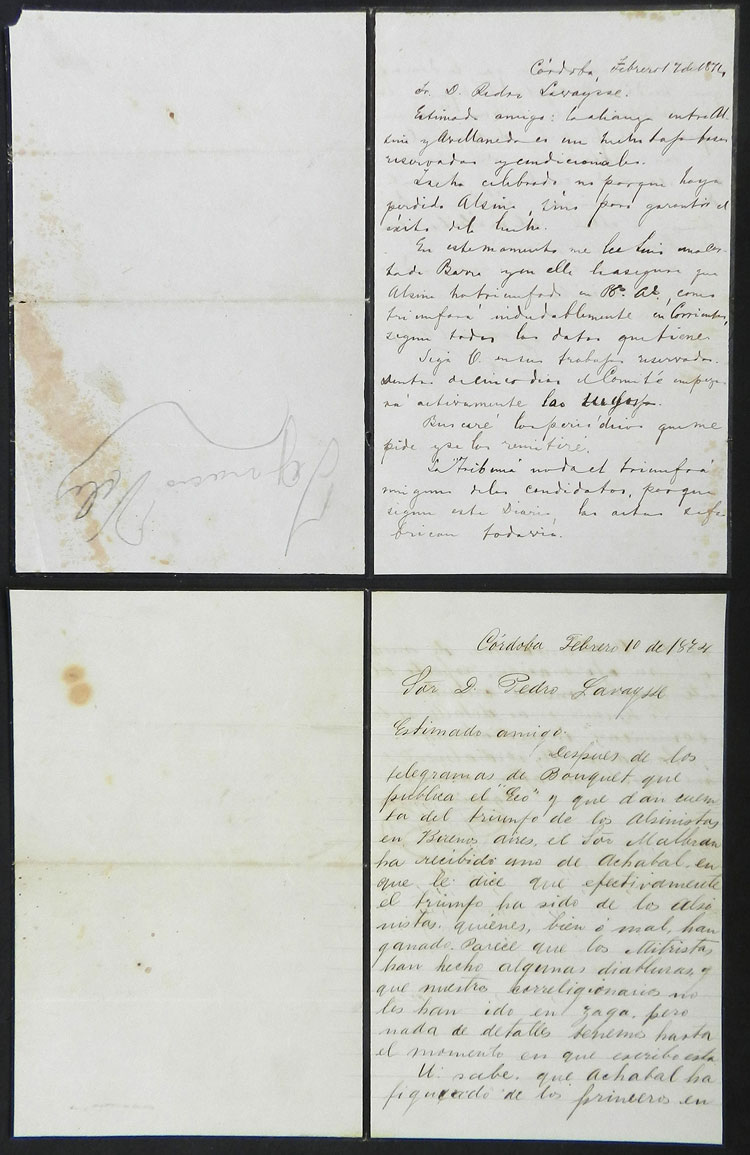 Córdoba, Febrero 17 de 1874
Sr. D. Pedro Lavaysse.
Estimado amigo: la alianza entre Al-
sina y Avellaneda es un hecho bajo bases
reservadas y condicionales.
Se ha celebrado no porque haya
perdido Alsina, sino para garantir el
éxito del hecho.
En este momento me lee Luis una car-
ta de Barra y en ella le asegura que
Alsina ha triunfado en Bs. As., como
triunfará indudablemente en Corrientes,
segun todos los datos que tiene.
Siga U. en sus trabajos reservados.
Dentro de cinco dias el Comité empeza-
rá activamente los
Buscaré los periódicos que me
pide y se los remitiré.
La "Tribuna" no da el triunfo á
ninguno de los candidatos, porque
segun este Diario, las actas se fa-
brican todavia.
Ignacio Velez
Córdoba Febrero 10 de 1874
Sor. D. Pedro Lavaysse
Estimado amigo:
Despues de los
telegramas de Bouquet que
publica el "Eco" y que dan cuen-
ta del triunfo de los alsinistas
en Buenos aires, el Sor Malbran
ha recibido uno de Achabal en
que le dice que efectivamente
el triunfo ha sido de los alsi-
nistas, quienes, bien ó mal, han
ganado. Parece que los Mitristas
han hecho algunas diabluras, y
que nuestros correligionarios no
les han ido en zaga, pero
nada de detalles tenemos hasta
el momento en que escribo esta
U. sabe que Achabal ha
figurado de los primeros en